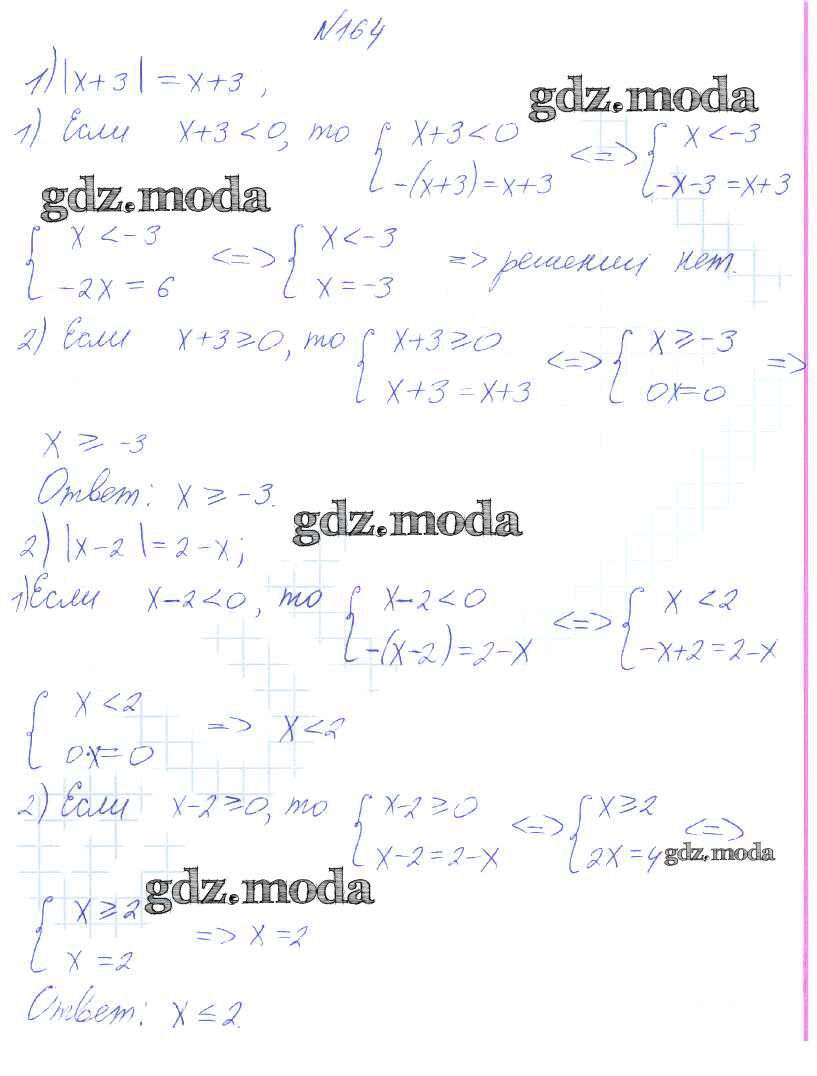 №164
1) |x+3| = x+3 ;
gdz.moda
1) Если x+3<0, то { x+3<0 <=> { x<-3
-(x+3)=x+3 -x-3=x+3
gdz.moda
{ x<-3 <=> { x<-3 => решений нет.
-2x=6 x=-3
2) Если x+3≥0, то { x+3≥0 <=> { x≥-3 =>
x+3=x+3 0x=0
x ≥ -3
Ответ: x ≥ -3.
gdz.moda
2) |x-2|=2-x;
1) Если x-2<0, то { x-2<0 <=> { x<2
-(x-2)=2-x -x+2=2-x
{ x<2 => x<2
0·x=0
2) Если x-2≥0, то { x-2≥0 <=> { x≥2 <=>
x-2=2-x 2x=4 gdz.moda
gdz.moda
{ x≥2 => x=2
x=2
Ответ: x ≤ 2.